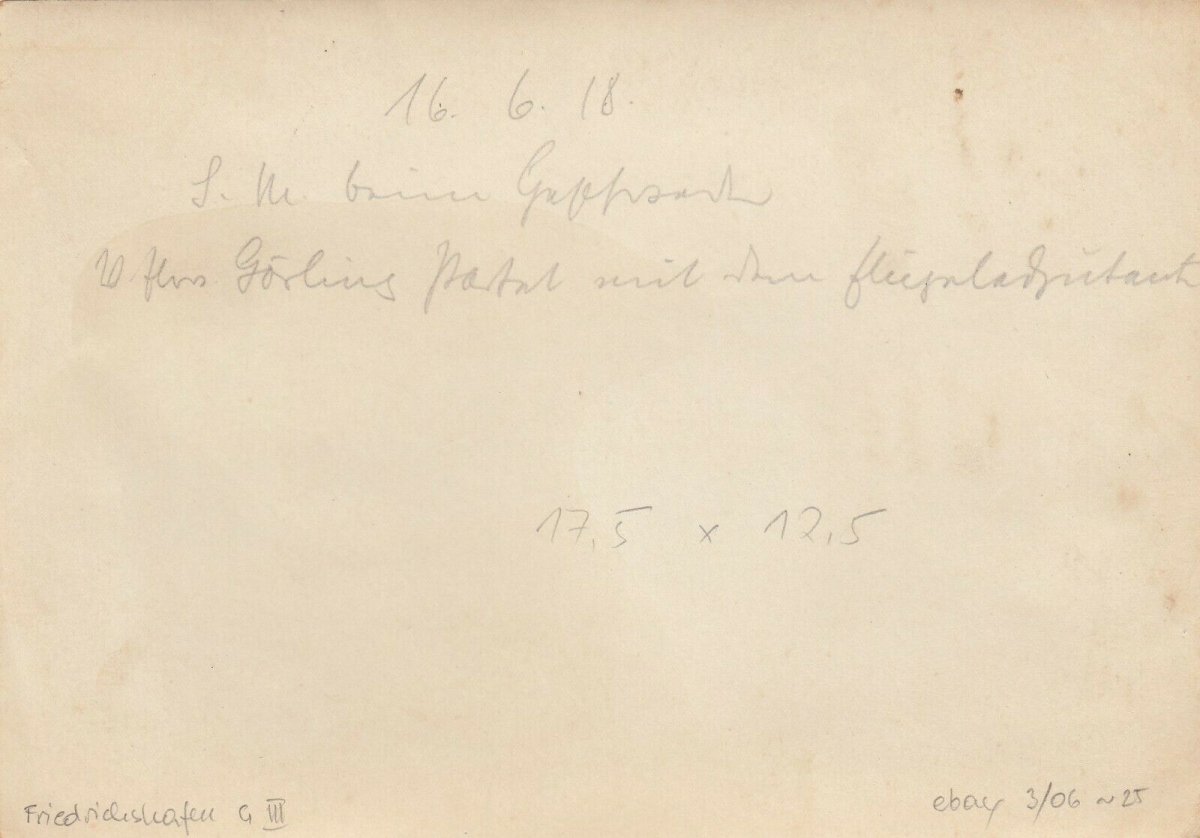 16. 6. 18.
S. M. beim
Görling mit dem Flügeladjutant
17,5 x 12,5
Friedrichshafen G III
ebay 3/06 ~25